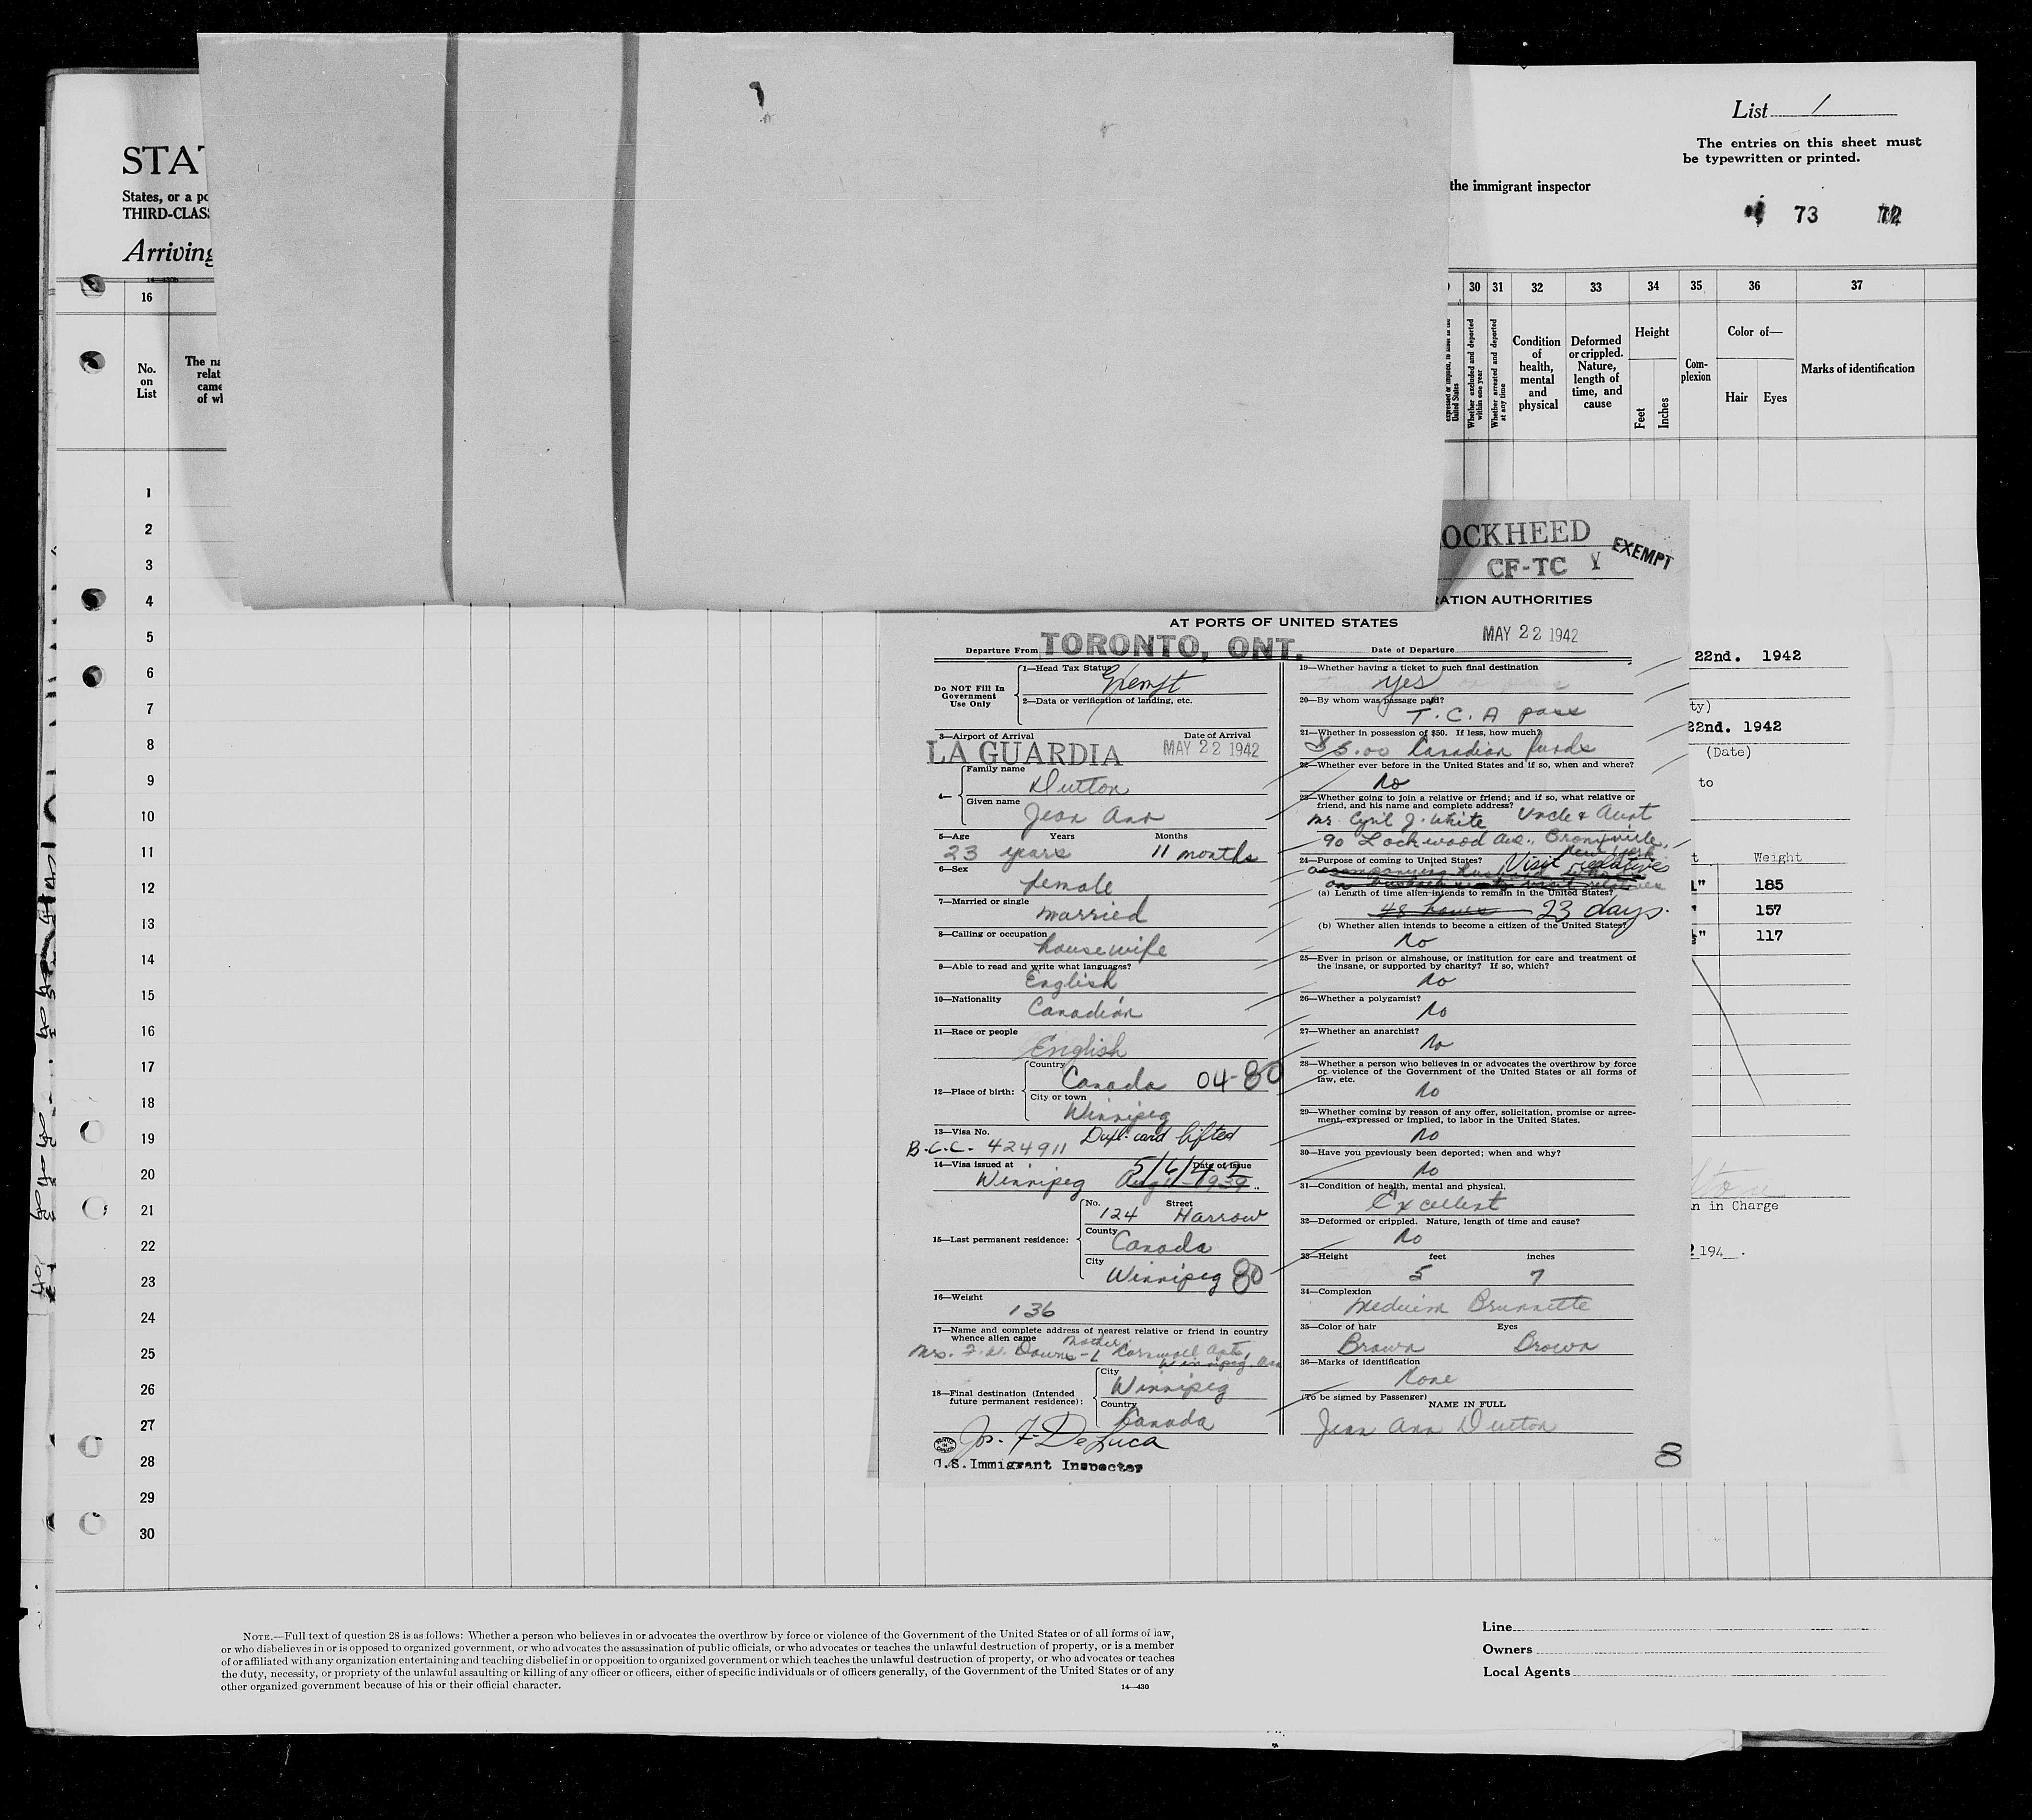 STAT
States, or a po
THIRD-CLASS
Arriving
List 1
The entries on this sheet must
be typewritten or printed.
the immigrant inspector
73 72
16
30 31 32 33 34 35 36 37
No.
on
List
The na
relat
came
of wh
expressed or implied, to labor in the United States
Whether excluded and deported within one year
Whether arrested and deported at any time
Condition
of
health,
mental
and
physical
Deformed
or crippled.
Nature,
length of
time, and
cause
Height
Feet
Inches
Com-
plexion
Color of—
Hair Eyes
Marks of identification
1
2
3
4
5
6
7
8
9
10
11
12
13
14
15
16
17
18
19
20
21
22
23
24
25
26
27
28
29
30
OCKHEED
CF-TC Y
EXEMPT
RATION AUTHORITIES
AT PORTS OF UNITED STATES
MAY 22 1942
Departure From TORONTO, ONT. Date of Departure
Do NOT Fill In
Government
Use Only
1—Head Tax Status
Exempt
2—Data or verification of landing, etc.
3—Airport of Arrival Date of Arrival
LA GUARDIA MAY 22 1942
4—
Family name
Dutton
Given name
Jean Ann
5—Age Years Months
23 years 11 months
6—Sex
female
7—Married or single
married
8—Calling or occupation
housewife
9—Able to read and write what languages?
English
10—Nationality
Canadian
11—Race or people
English
12—Place of birth:
Country
Canada 04-80
City or town
Winnipeg
13—Visa No. Dupl. card lifted
B.C.C. 424911
14—Visa issued at Date of issue
Winnipeg 5/6/42
Aug 1939
15—Last permanent residence:
No. Street
124 Harrow
County
Canada
City
Winnipeg 80
16—Weight
136
17—Name and complete address of nearest relative or friend in country
whence alien came mother
Mrs. F. W. Downs-1 Cornwall Apts,
Winnipeg, Man
18—Final destination (Intended
future permanent residence):
City
Winnipeg
Country
Canada
Jos. F. DeLuca
U.S. Immigrant Inspector
19—Whether having a ticket to such final destination
yes
20—By whom was passage paid?
T.C.A pass
21—Whether in possession of $50. If less, how much?
$5.00 Canadian funds
22—Whether ever before in the United States and if so, when and where?
no
23—Whether going to join a relative or friend; and if so, what relative or
friend, and his name and complete address?
Mr. Cyril J. White Uncle & Aunt
90 Lockwood Ave., Bronxville,
New York
24—Purpose of coming to United States? Visit relatives
accompanying husband who is
on business to visit relatives
(a) Length of time alien intends to remain in the United States?
48 hours 23 days.
(b) Whether alien intends to become a citizen of the United States?
no
25—Ever in prison or almshouse, or institution for care and treatment of
the insane, or supported by charity? If so, which?
no
26—Whether a polygamist?
no
27—Whether an anarchist?
no
28—Whether a person who believes in or advocates the overthrow by force
or violence of the Government of the United States or all forms of
law, etc.
no
29—Whether coming by reason of any offer, solicitation, promise or agree-
ment, expressed or implied, to labor in the United States.
no
30—Have you previously been deported; when and why?
no
31—Condition of health, mental and physical.
Excellent
32—Deformed or crippled. Nature, length of time and cause?
no
33—Height feet inches
5 7
34—Complexion
Meduim Brunnette
35—Color of hair Eyes
Brown Brown
36—Marks of identification
None
(To be signed by Passenger)
NAME IN FULL
Jean Ann Dutton
80
22nd. 1942
ty)
22nd. 1942
(Date)
to
t Weight
1" 185
" 157
" 117
n in Charge
2 194 .
NOTE.—Full text of question 28 is as follows: Whether a person who believes in or advocates the overthrow by force or violence of the Government of the United States or of all forms of law,
or who disbelieves in or is opposed to organized government, or who advocates the assassination of public officials, or who advocates or teaches the unlawful destruction of property, or is a member
of or affiliated with any organization entertaining and teaching disbelief in or opposition to organized government or which teaches the unlawful destruction of property, or who advocates or teaches
the duty, necessity, or propriety of the unlawful assaulting or killing of any officer or officers, either of specific individuals or of officers generally, of the Government of the United States or of any
other organized government because of his or their official character.
14—430
Line
Owners
Local Agents